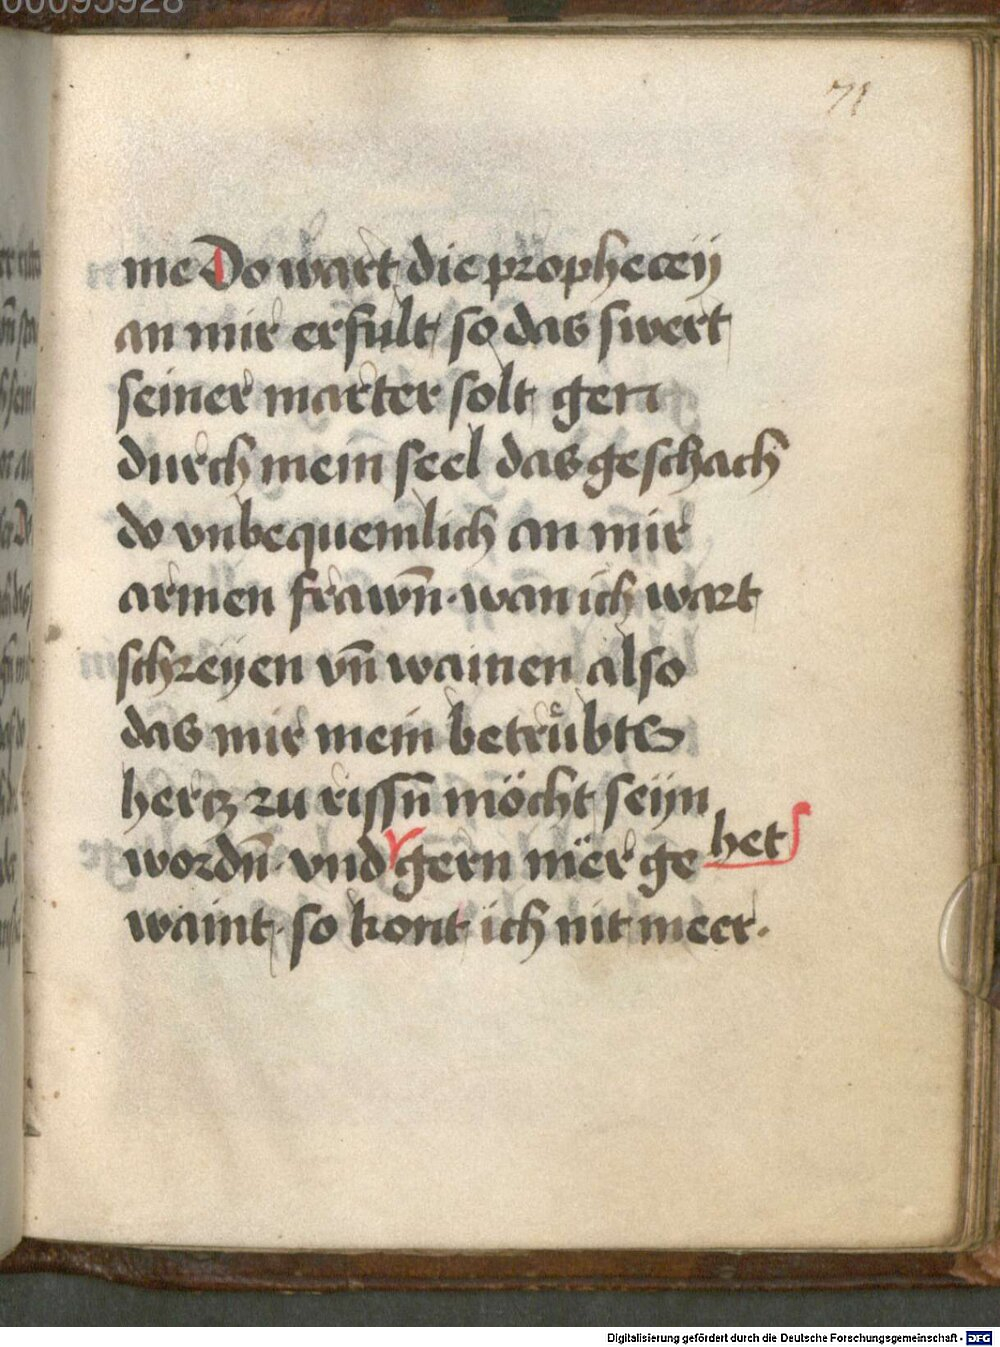 00095928
71
me Do wart die prophecey
an mir erfult so das swert
seiner marter solt gen
durch mein seel das geschach
do vnbequemlich an mir
armen frawn̄ · wan ich wart
schreyen vn̄ wainen also
das mir mein betrůbts
hertz zu rissn̄ möcht seyn
wordn̄ · vnd gern mër ge het
waint · so kont ich nit meer ·
Digitalisierung gefördert durch die Deutsche Forschungsgemeinschaft - DFG